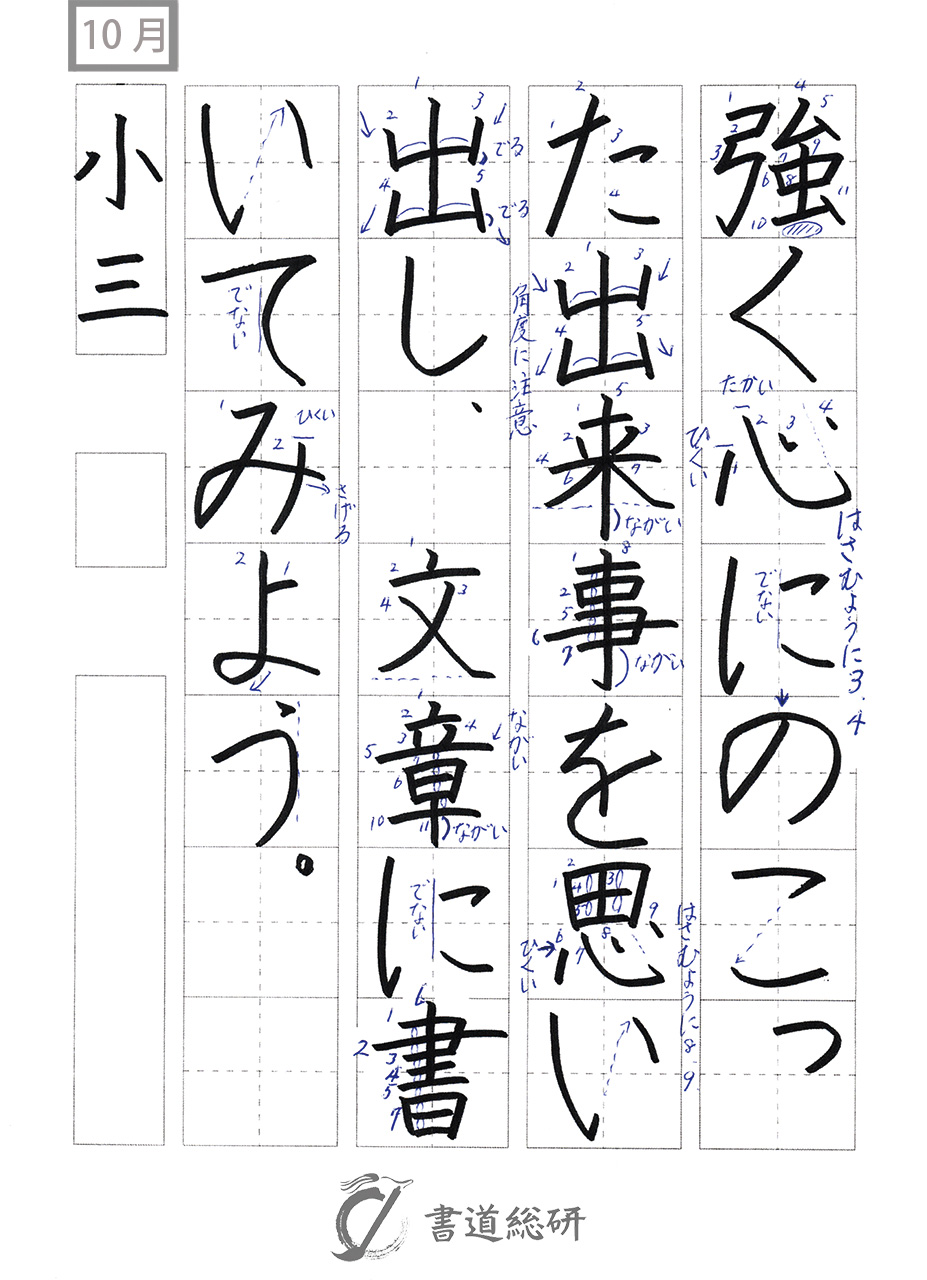 10月
強く心にのこっ
た出来事を思い
出し、文章に書
いてみよう。
小三
たかい
ひくい
はさむように3.4
でない
角度に注意
ながい
ながい
ひくい
はさむように8.9
でる
でる
ながい
ながい
でない
でない
ひくい
さげる
書道総研